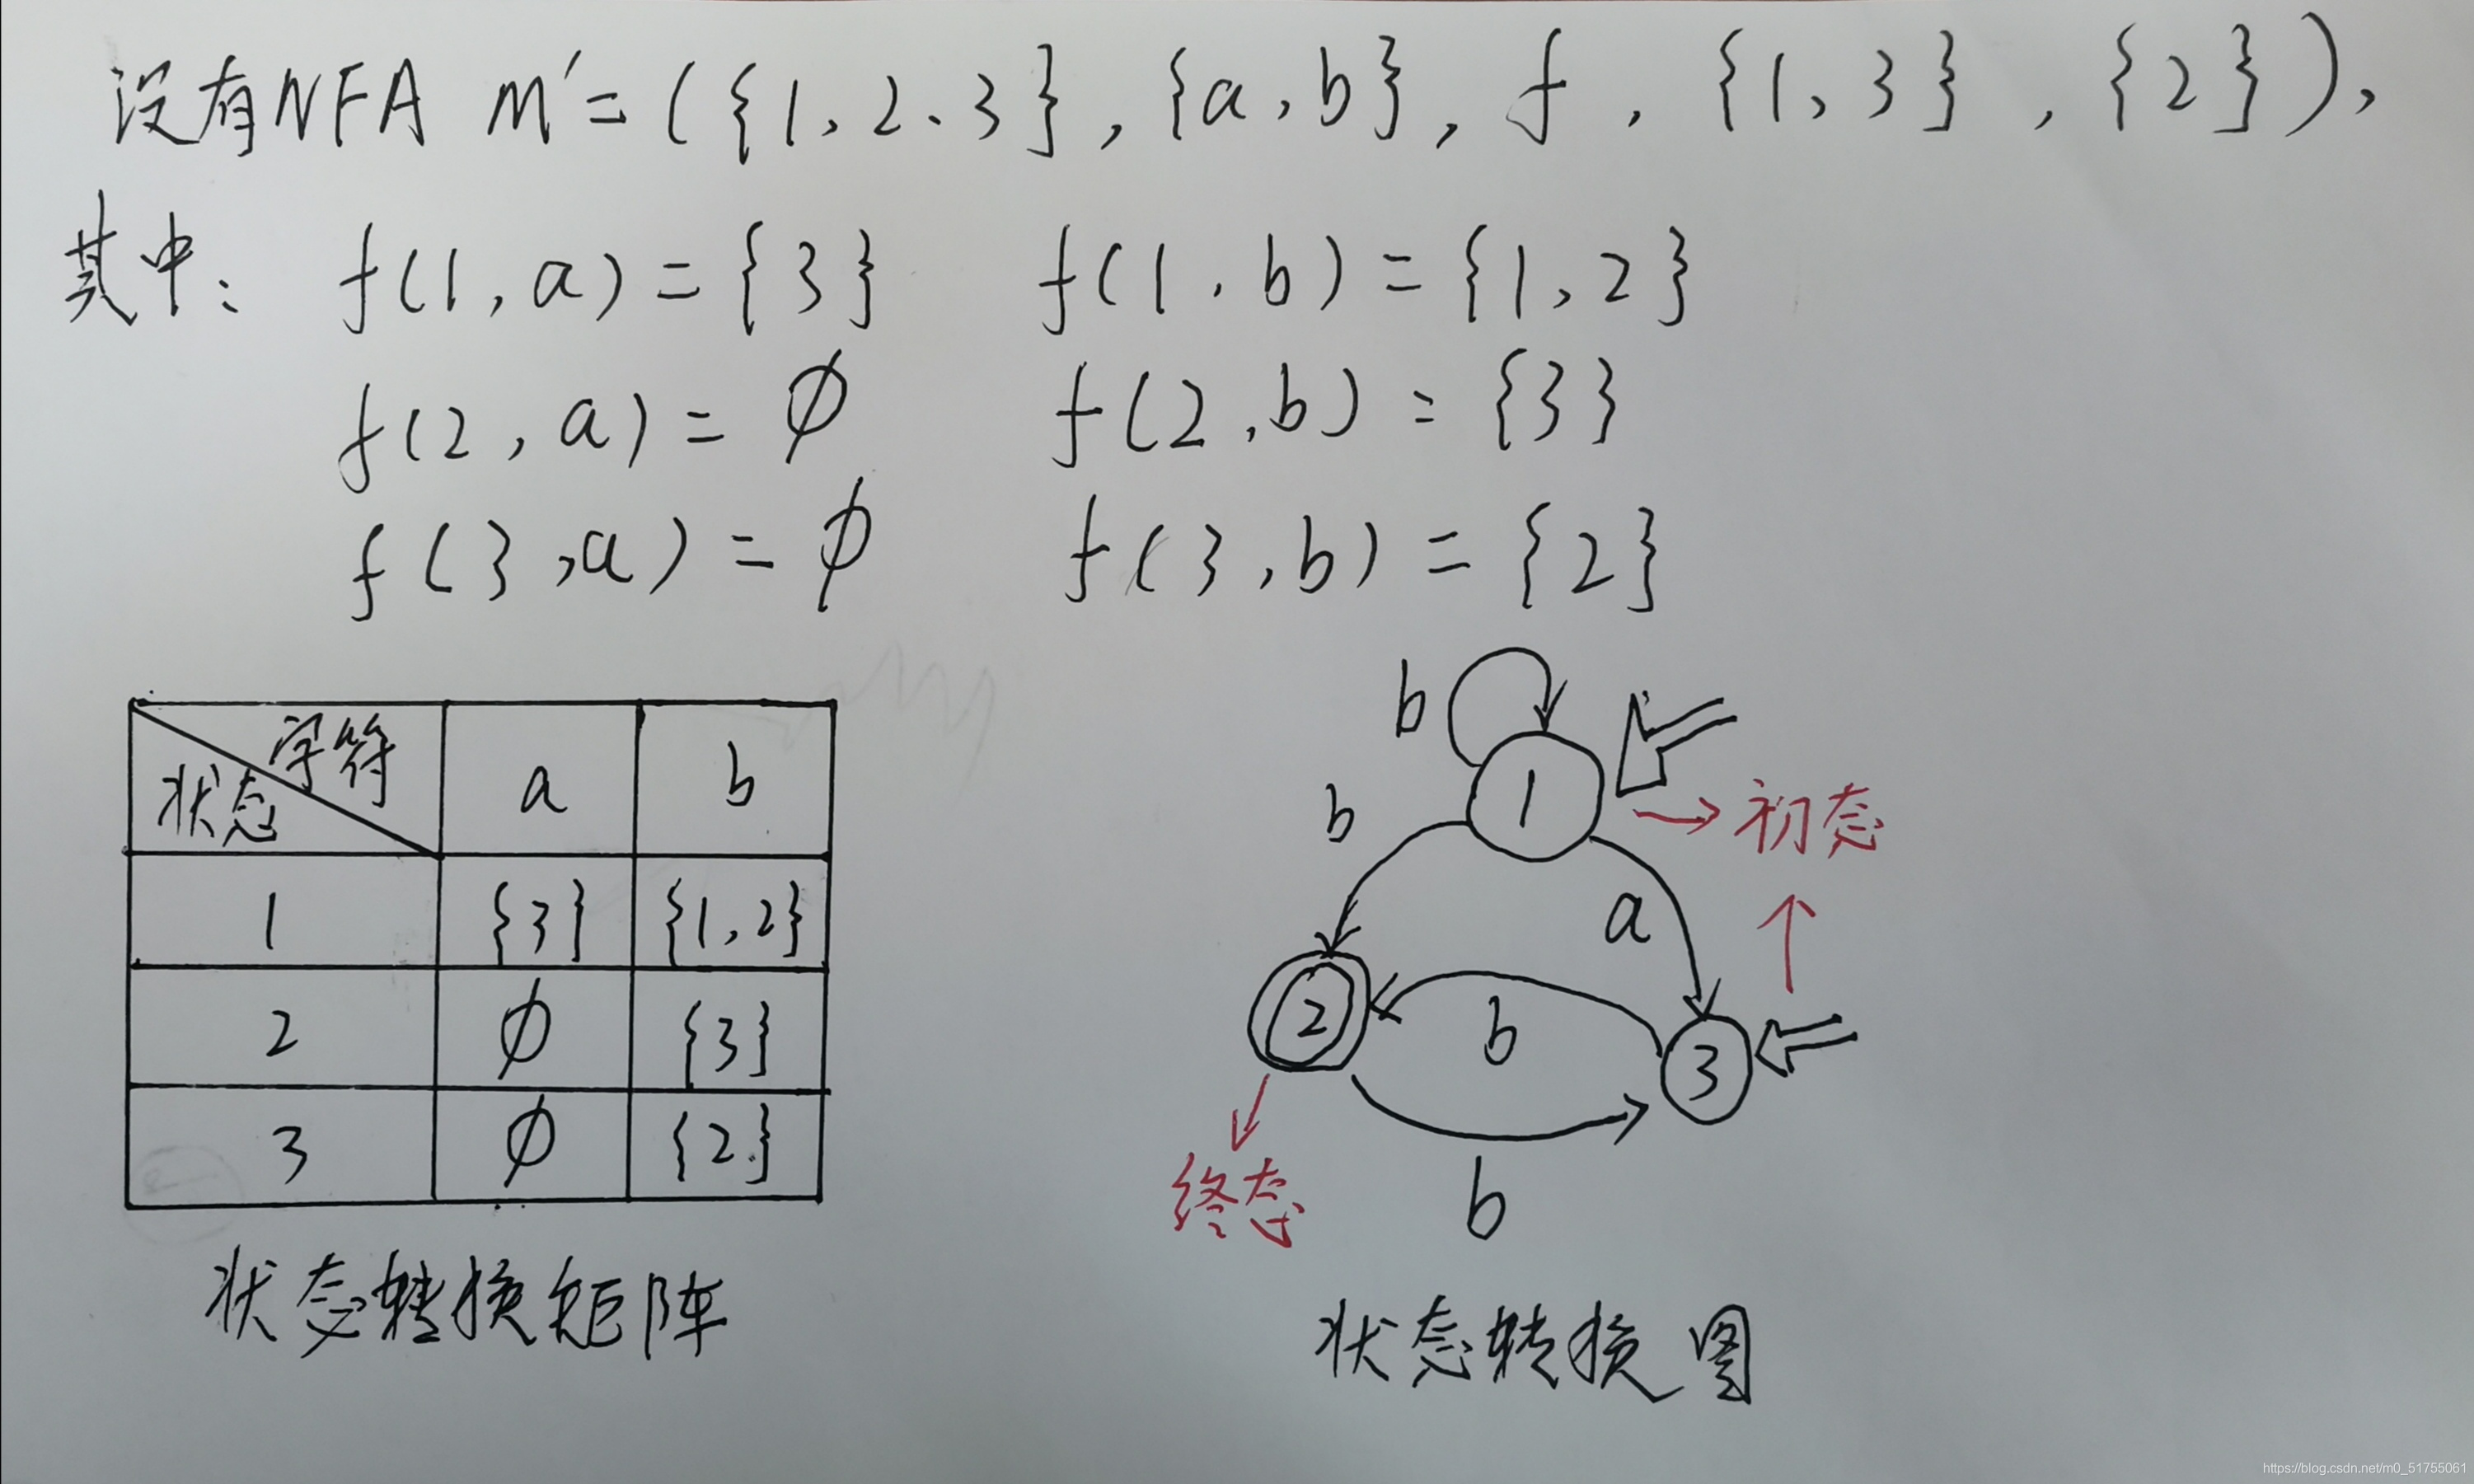 没有NFA M′=({1,2、3},{a,b},f,{1,3},{2}),
其中: f(1,a)={3} f(1,b)={1,2}
f(2,a)=∅ f(2,b)={3}
f(3,a)=∅ f(3,b)={2}
字符 a b
状态
1 {3} {1,2}
2 ∅ {3}
3 ∅ {2}
状态转换矩阵
b
1
b
→初态
a
↑
2
b
3
终态
b
状态转换图
https://blog.csdn.net/m0_51755061